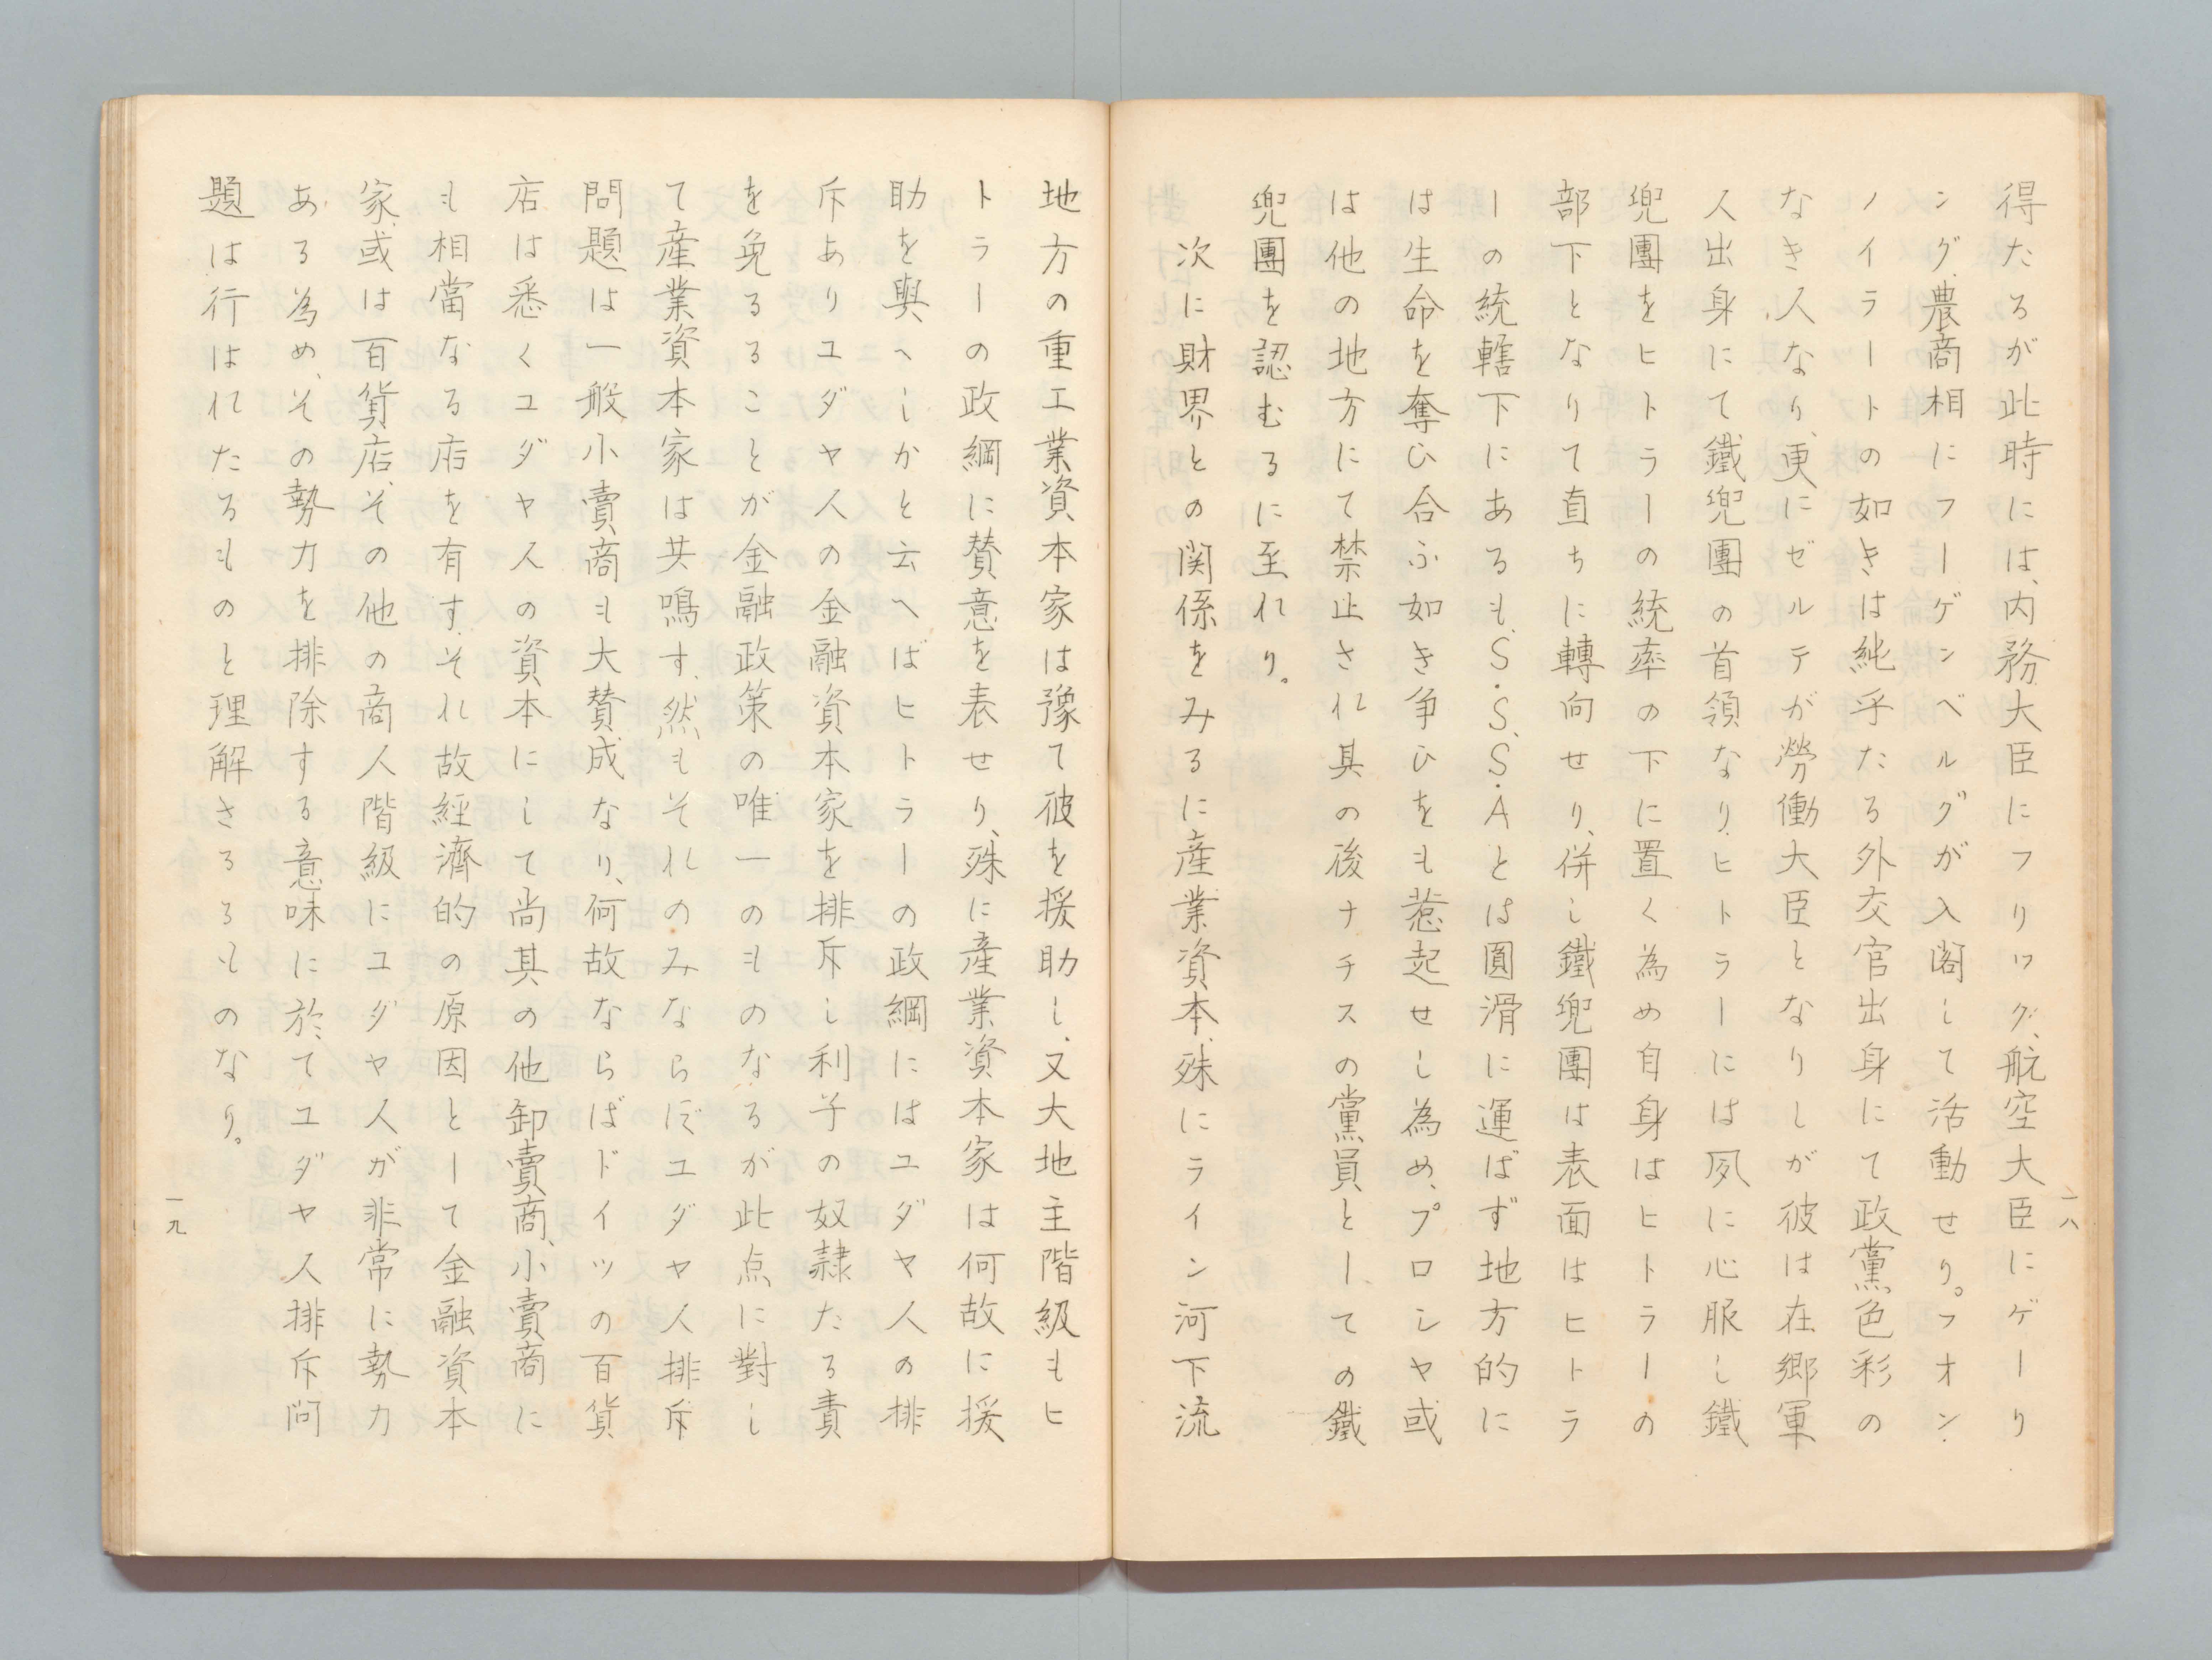 得たるが此時には、内務大臣にフリック、航空大臣にゲーリ
ング、農商相にフーゲンベルグが入閣して活動せり。フオン・
ノイラートの如きは純乎たる外交官出身にて政黨色彩の
なき人なり、更にゼルテが勞働大臣となりしが彼は在郷軍
人出身にて鐵兜團の首領なり、ヒトラーには夙に心服し鐵
兜團をヒトラーの統率の下に置く為め自身はヒトラーの
部下となりて直ちに轉向せり、併し鐵兜團は表面はヒトラ
ーの統轄下にあるも、S.S、S.Aとは圓滑に運ばず地方的に
は生命を奪ひ合ふ如き争ひをも惹起せし為め、プロシヤ或
は他の地方にて禁止され其の後ナチスの黨員としての鐵
兜團を認むるに至れり。
次に財界との関係をみるに産業資本、殊にライン河下流
一八
地方の重工業資本家は豫て彼を援助し、又大地主階級もヒ
トラーの政綱に賛意を表せり、殊に産業資本家は何故に援
助を與へしかと云へばヒトラーの政綱にはユダヤ人の排
斥ありユダヤ人の金融資本家を排斥し利子の奴隷たる責
を免るることが金融政策の唯一のものなるが此点に對し
て産業資本家は共鳴す、然もそれのみならずユダヤ人排斥
問題は一般小賣商も大賛成なり、何故ならばドイツの百貨
店は悉くユダヤ人の資本にして尚其の他卸賣商、小賣商に
も相當なる店を有す、それ故經濟的の原因として金融資本
家、或は百貨店、その他の商人階級にユダヤ人が非常に勢力
ある為め、その勢力を排除する意味に於てユダヤ人排斥問
題は行はれたるものと理解さるるものなり。
一九